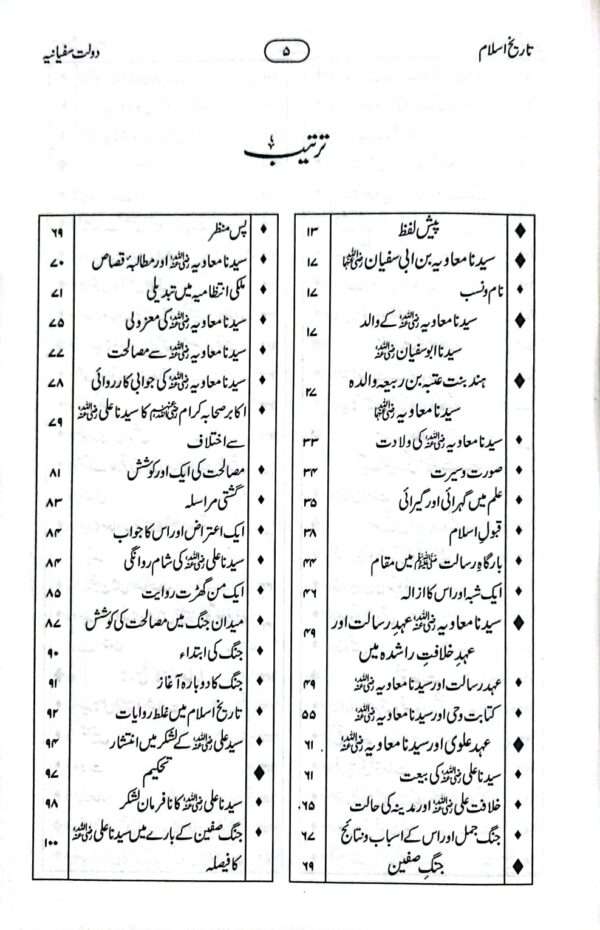 تاریخ اسلام ۵ دولت سفیانیہ
ترتیب
پیش لفظ ۱۳
سیدنا معاویہ بن ابی سفیان رضی اللہ عنہما ۱۷
نام و نسب ۱۷
سیدنا معاویہ رضی اللہ عنہ کے والد
سیدنا ابو سفیان رضی اللہ عنہ ۱۷
ہند بنت عتبہ بن ربیعہ والدہ
سیدنا معاویہ رضی اللہ عنہما ۲۷
سیدنا معاویہ رضی اللہ عنہ کی ولادت ۳۳
صورت و سیرت ۳۴
علم میں گہرائی اور گیرائی ۳۵
قبول اسلام ۳۸
بارگاہِ رسالت ﷺ میں مقام ۴۴
ایک شبہ اور اس کا ازالہ ۴۶
سیدنا معاویہ رضی اللہ عنہ عہدِ رسالت اور
عہدِ خلافتِ راشدہ میں ۴۹
عہد رسالت اور سیدنا معاویہ رضی اللہ عنہ ۴۹
کتابت وحی اور سیدنا معاویہ رضی اللہ عنہ ۵۵
عہد علوی اور سیدنا معاویہ رضی اللہ عنہ ۶۱
سیدنا علی رضی اللہ عنہ کی بیعت ۶۱
خلافت علی رضی اللہ عنہ اور مدینہ کی حالت ۶۵
جنگ جمل اور اس کے اسباب و نتائج ۶۷
جنگِ صفین ۶۹
پس منظر ۶۹
سیدنا معاویہ رضی اللہ عنہ اور مطالبۂ قصاص ۷۰
ملکی انتظامیہ میں تبدیلی ۷۱
سیدنا معاویہ رضی اللہ عنہ کی معزولی ۷۵
سیدنا معاویہ رضی اللہ عنہ سے مصالحت ۷۷
سیدنا معاویہ رضی اللہ عنہ کی جوابی کارروائی ۷۸
اکابر صحابہ کرام رضی اللہ عنہم کا سیدنا علی رضی اللہ عنہ
سے اختلاف ۷۹
مصالحت کی ایک اور کوشش ۸۱
گشتی مراسلہ ۸۳
ایک اعتراض اور اس کا جواب ۸۴
سیدنا علی رضی اللہ عنہ کی شام روانگی ۸۴
ایک من گھڑت روایت ۸۵
میدان جنگ میں مصالحت کی کوشش ۸۷
جنگ کی ابتداء ۹۰
جنگ کا دوبارہ آغاز ۹۱
تاریخ اسلام میں غلط روایات ۹۲
سید علی رضی اللہ عنہ کے لشکر میں انتشار ۹۴
تحکیم ۹۷
سیدنا علی رضی اللہ عنہ کا نافرمان لشکر ۹۸
جنگ صفین کے بارے میں سیدنا علی رضی اللہ عنہ
کا فیصلہ ۱۰۰